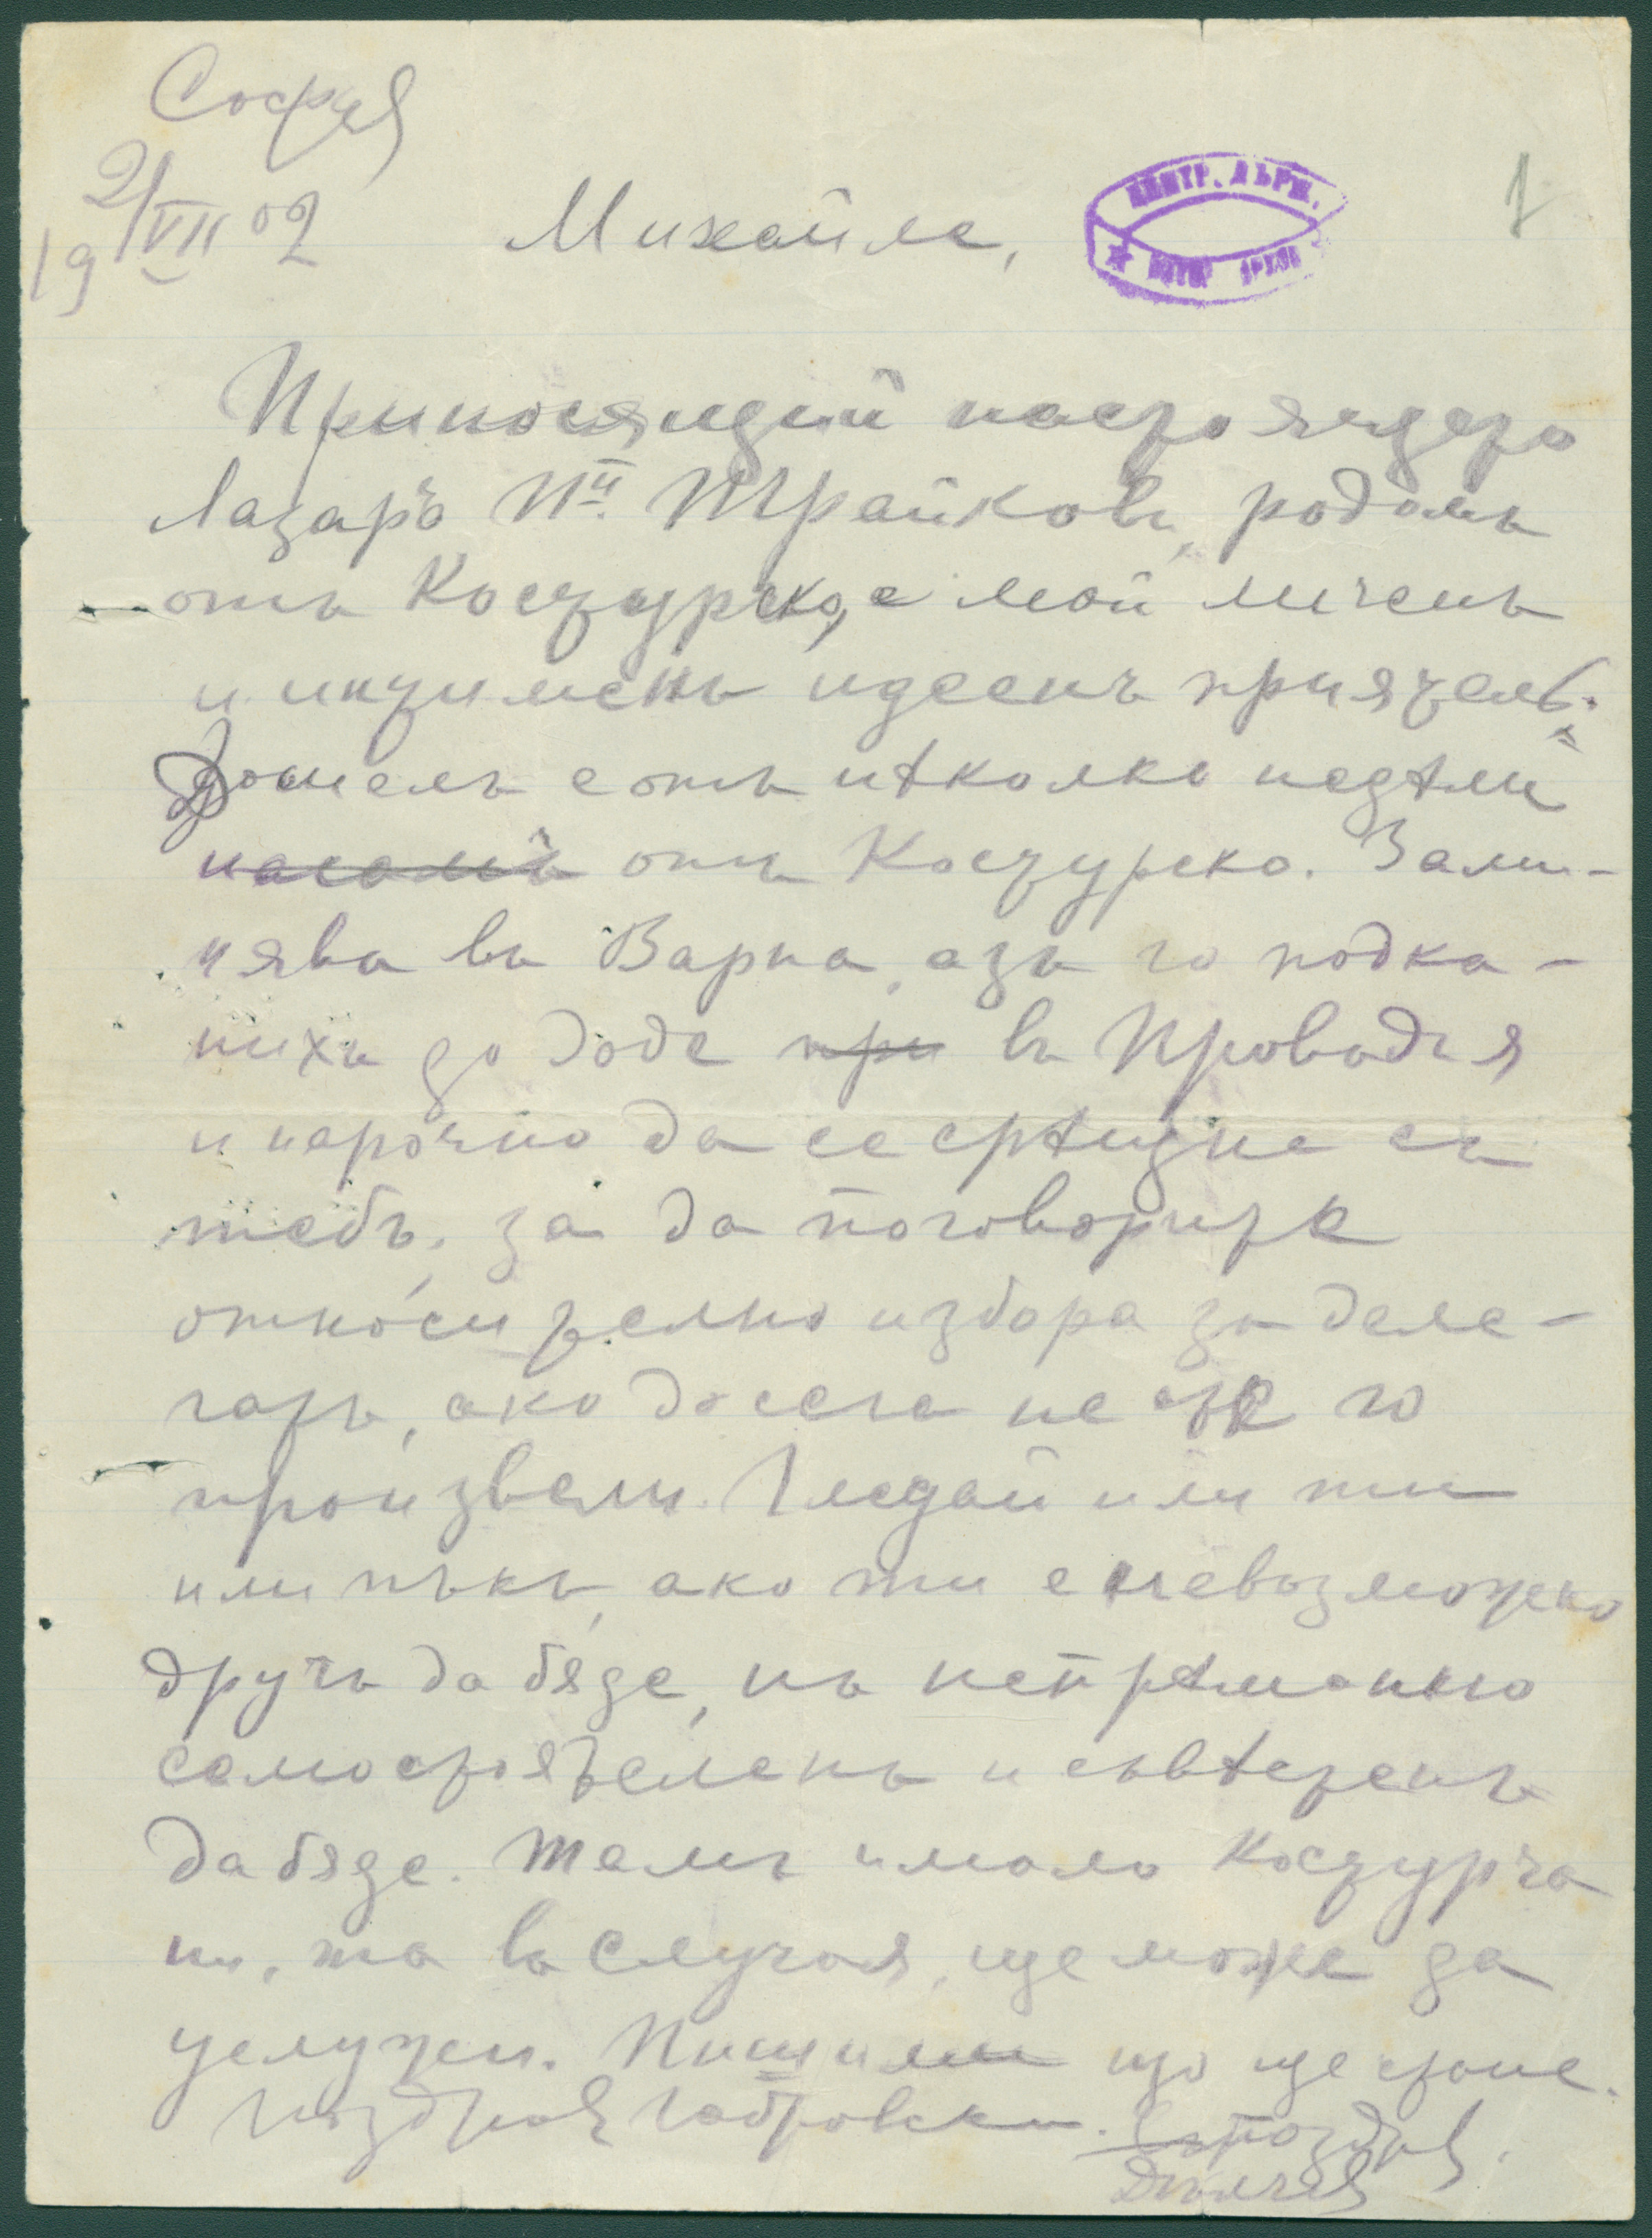 София
2/VII 02
19
Михаиле,
ЦЕНТР. ДЪРЖ.
АРХИВ
1
Приносящий настоящето
Лазаръ Пп. Трайковъ, родомъ
отъ Костурско, е мой личенъ
и интименъ идеенъ приятель.
Дошелъ е отъ нѣколко недѣли
насамъ отъ Костурско. Зами-
нява въ Варна, азъ го подка-
нихъ да доде при въ Провадия
и нарочно да се срѣщне съ
тебъ, за да поговорите
относително избора за деле-
гатъ, ако досега не сте го
произвели. Гледай или ти
или пъкъ, ако ти е невъзможно
другъ да бѫде, нъ непрѣменно
самостоятеленъ и съвѣстенъ
да бѫде. Тамъ имало Костурча
ни, та въ случая, ще може да
услужи. Пиши ми що ще стане.
Поздрав Габровски. Съ поздрав.
Делчев